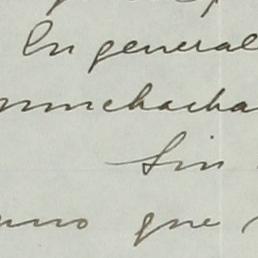 En general
muchacha
Sin
uno que